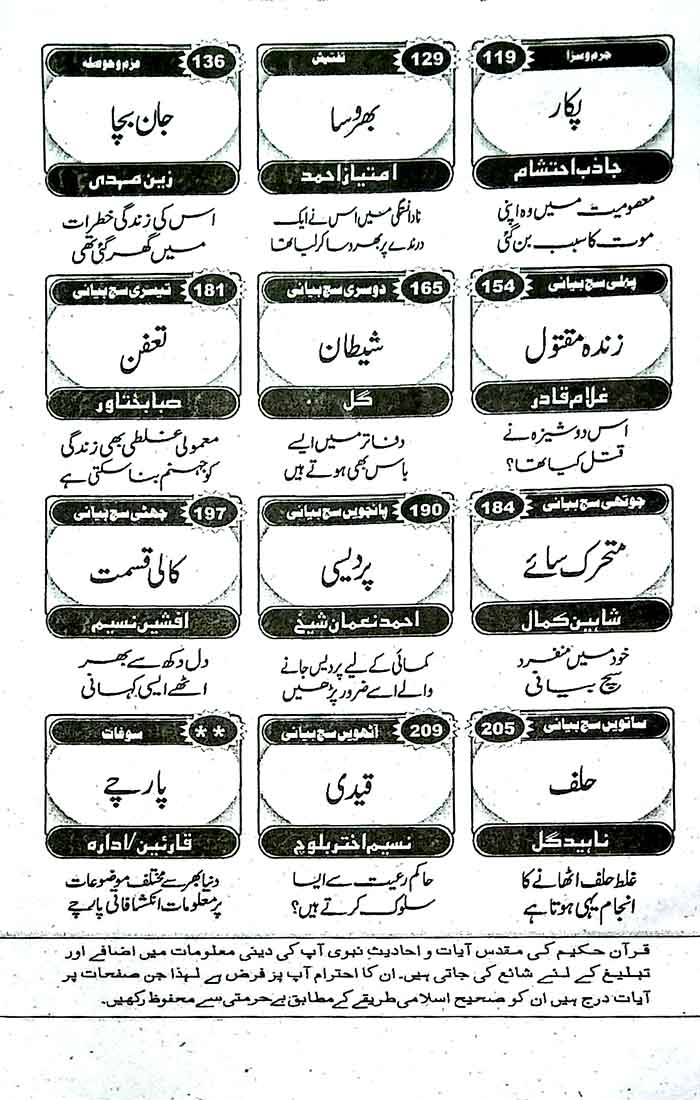 جرم و سزا 119
پکار
جاذب احتشام
معصومیت میں وہ اپنی
موت کا سبب بن گئی
تفتیش 129
بھروسا
امتیاز احمد
نادانستگی میں اس نے ایک
درندے پر بھروسا کر لیا تھا
عزم و حوصلہ 136
جان بچا
زین مہدی
اس کی زندگی خطرات
میں گھر گئی تھی
پہلی سچ بیانی 154
زندہ مقتول
غلام قادر
اس دوشیزہ نے
قتل کیا تھا؟
دوسری سچ بیانی 165
شیطان
گل
دفاتر میں ایسے
باس بھی ہوتے ہیں
تیسری سچ بیانی 181
تعفن
صبا بختاور
معمولی غلطی بھی زندگی
کو جہنم بنا سکتی ہے
چوتھی سچ بیانی 184
متحرک سائے
شاہین کمال
خود میں منفرد
سچ بیانی
پانچویں سچ بیانی 190
پردیسی
احمد نعمان شیخ
کمائی کے لیے پردیس جانے
والے اسے ضرور پڑھیں
چھٹی سچ بیانی 197
کالی قسمت
افشین نسیم
دل دکھ سے بھر
اٹھے ایسی کہانی
ساتویں سچ بیانی 205
حلف
ناہید گل
غلط حلف اٹھانے کا
انجام یہی ہوتا ہے
آٹھویں سچ بیانی 209
قیدی
نسیم اختر بلوچ
حاکم رعیت سے ایسا
سلوک کرتے ہیں؟
سوغات **
پارچے
قارئین/ادارہ
دنیا بھر سے مختلف موضوعات
پر معلومات انکشافاتی پارچے
قرآن حکیم کی مقدس آیات و احادیث نبوی آپ کی دینی معلومات میں اضافے اور
تبلیغ کے لئے شائع کی جاتی ہیں۔ ان کا احترام آپ پر فرض ہے لہٰذا جن صفحات پر
آیات درج ہیں ان کو صحیح اسلامی طریقے کے مطابق بے حرمتی سے محفوظ رکھیں۔